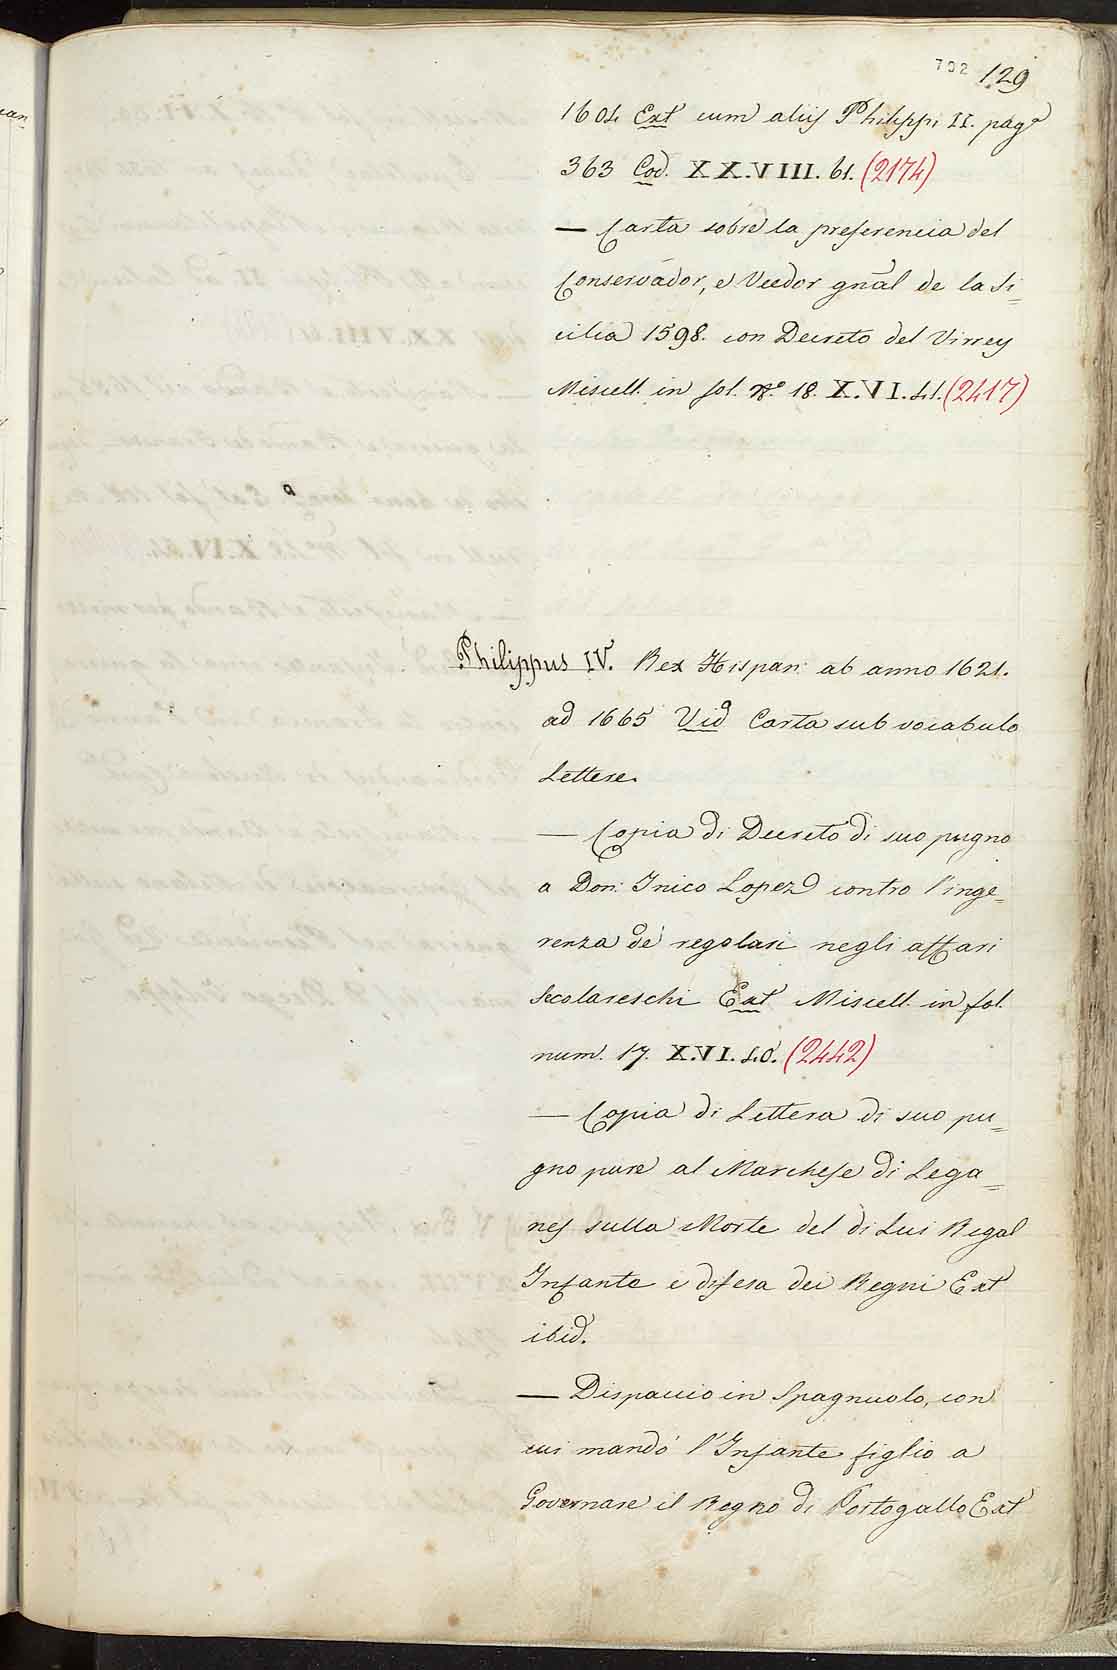 702 129
1604 Ext cum aliis Philippi II. pag.ª
363 Cod. XX.VIII. 61. (2174)
— Carta sobre la preferencia del
Conservador, e Veedor gnál de la Si=
cilia 1598. con Decreto del Virrey
Miscell. in fol. Nº. 18. X.VI. 41. (2417)
Philippus IV. Rex Hispan: ab anno 1621.
ad 1665 Vid Carta sub vocabulo
Lettere.
— Copia di Decreto di suo pugno
a Don: Inico Lopez contro l'inge=
renza de' regolari negli affari
Secolareschi Ext Miscell. in fol.
num. 17. X.VI. 40. (2442)
— Copia di Lettera di suo pu=
gno pure al Marchese di Lega=
nes sulla Morte del di Lui Regal
Infante e difesa dei Regni Ext
ibid.
— Dispaccio in Spagnuolo, con
cui mandò l'Infante figlio a
Governare il Regno di Portogallo Ext